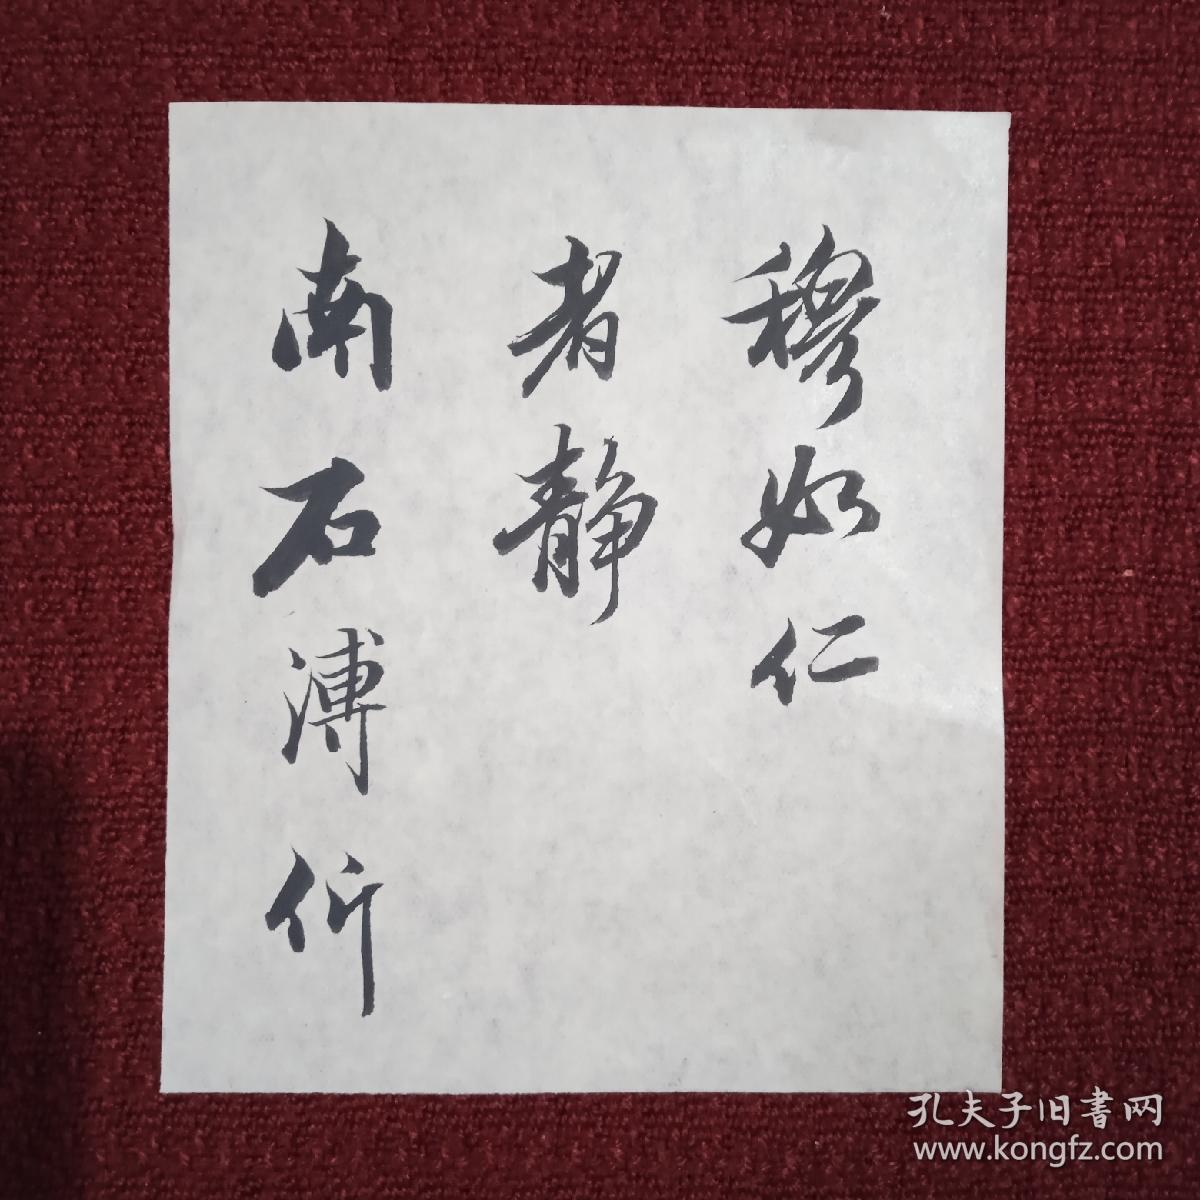 穆如仁
者静
南石溥伒
孔夫子旧書网
www.kongfz.com